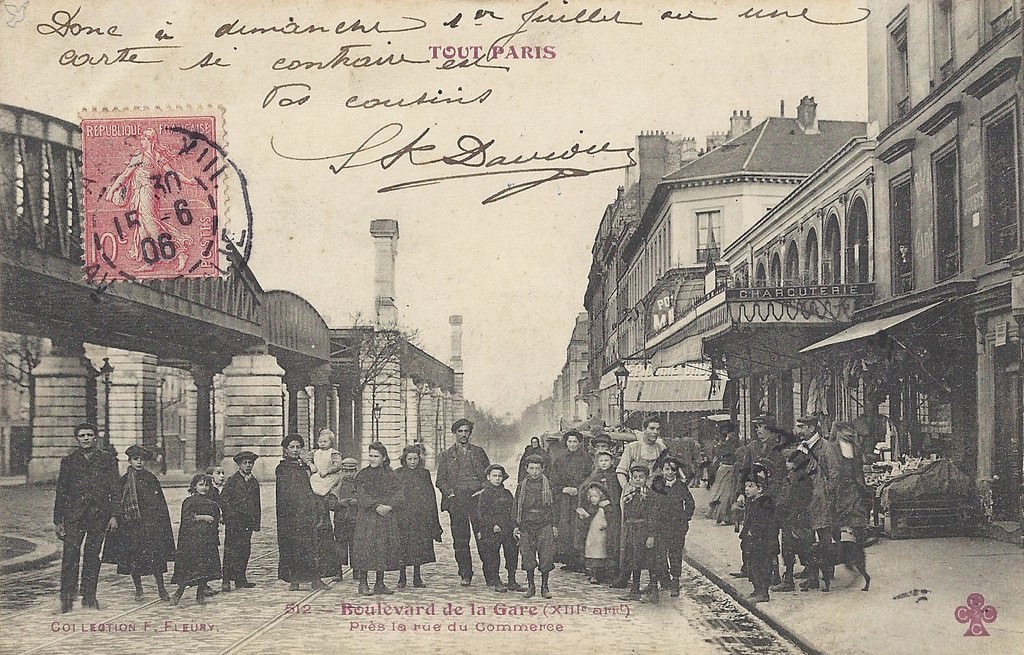 Donc à dimanche 1er Juillet ou une
carte si contraire est
TOUT PARIS
Vos cousins
RÉPUBLIQUE FRANÇAISE
10c
POSTES
XIII
30
15-6
06
CHARCUTERIE
512 - Boulevard de la Gare (XIIIe arrt)
Près la rue du Commerce
COLLECTION F. FLEURY.
C C C